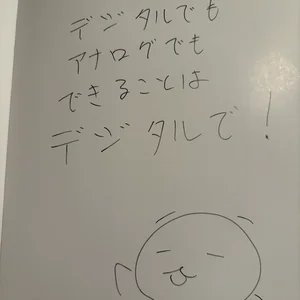 デジタルでも
アナログでも
できることは
デジタルで!